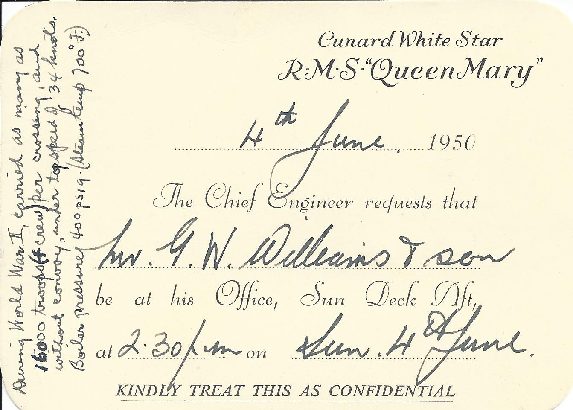 Cunard White Star
R·M·S·"Queen Mary"
4th June, 1950
The Chief Engineer requests that
Mr. G. W. Williams & son
be at his Office, Sun Deck Aft,
at 2·30 p.m on Sun. 4th June.
KINDLY TREAT THIS AS CONFIDENTIAL
During World War II, carried as many as
16000 troops & crew per crossing, and
without convoy, under top speed, 34 knots.
Boiler pressure 400 psig. (Steam temp 700°F.)